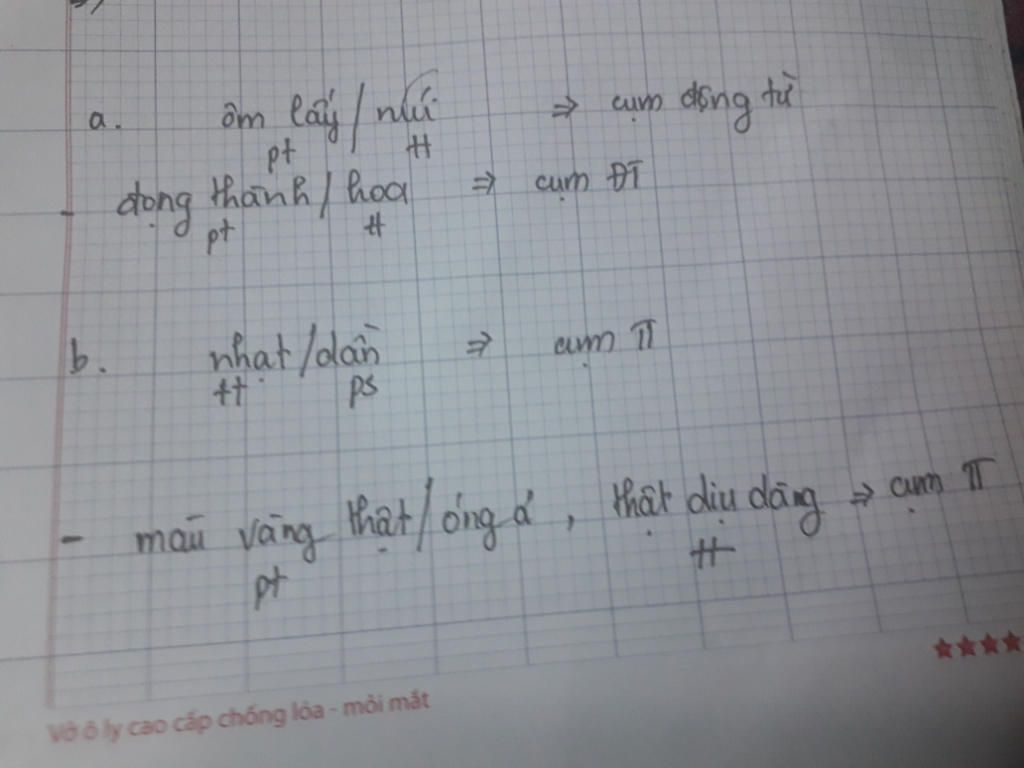 a. ôm lấy / núi ⇒ cụm động từ
pt tt
- đọng thành / hoa ⇒ cụm ĐT
pt tt
b. nhạt / dần ⇒ cụm TT
tt ps
- màu vàng thật / óng ả , thật dịu dàng ⇒ cụm TT
pt tt
Vở ô ly cao cấp chống lóa - mỏi mắt